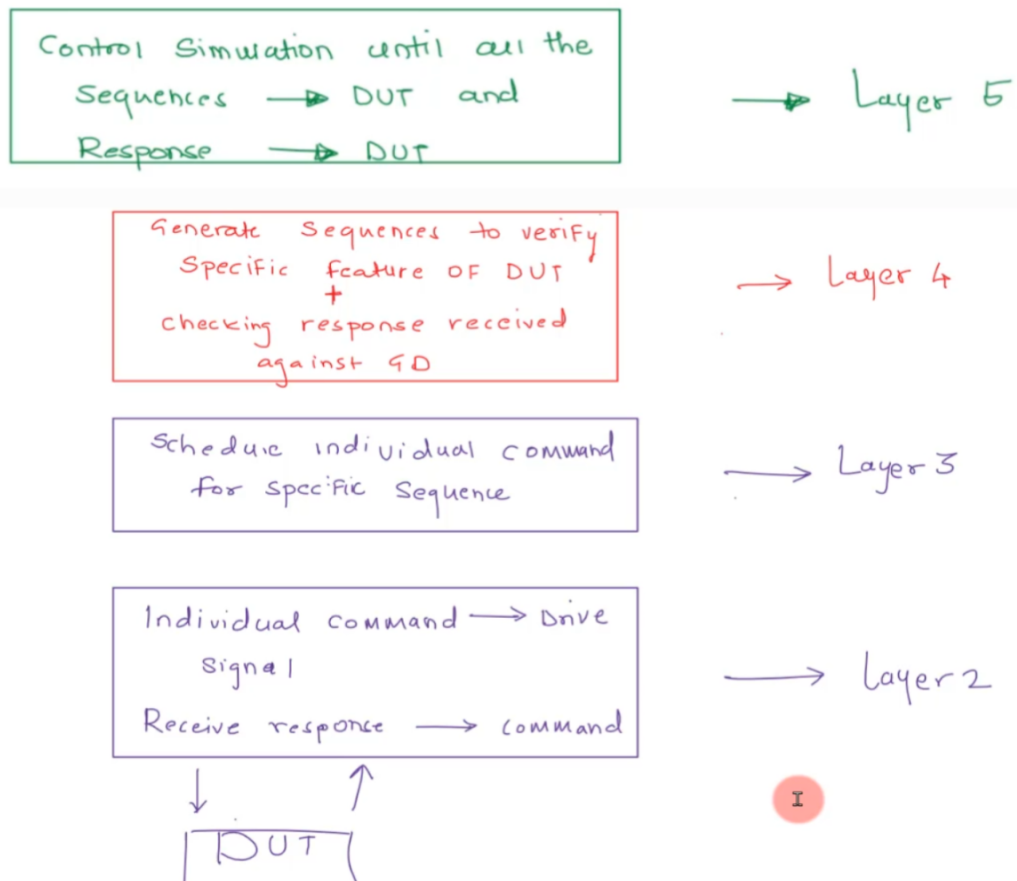 Control Simulation until all the
Sequences → DUT and
Response → DUT
→ Layer 5
Generate sequences to verify
Specific feature OF DUT
+
checking response received
against GD
→ Layer 4
Schedule individual command
for specific Sequence
→ Layer 3
Individual command → Drive
signal
Receive response → command
→ Layer 2
↓ ↑
DUT